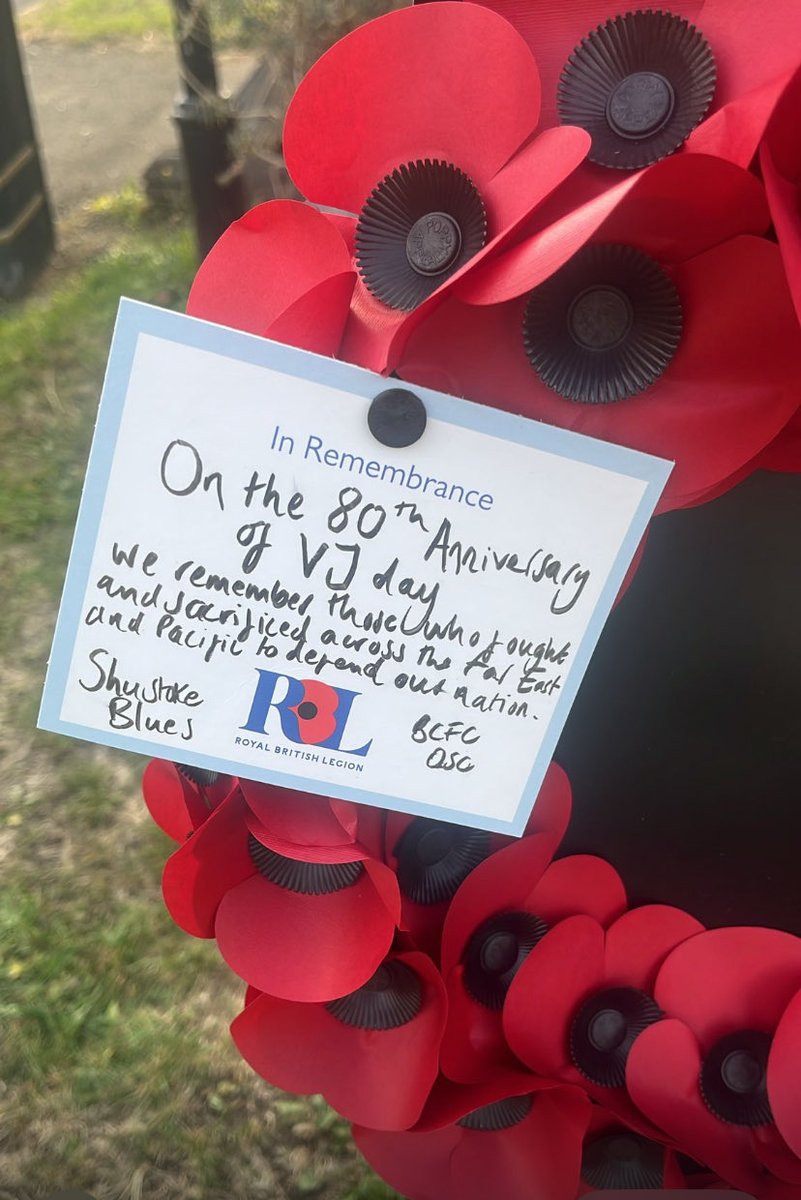 In Remembrance
On the 80th Anniversary
of VJ day
We remember those who fought
and sacrificed across the Far East
and Pacific to defend out nation.
Shustoke
Blues
RBL
ROYAL BRITISH LEGION
BCFC
OSC